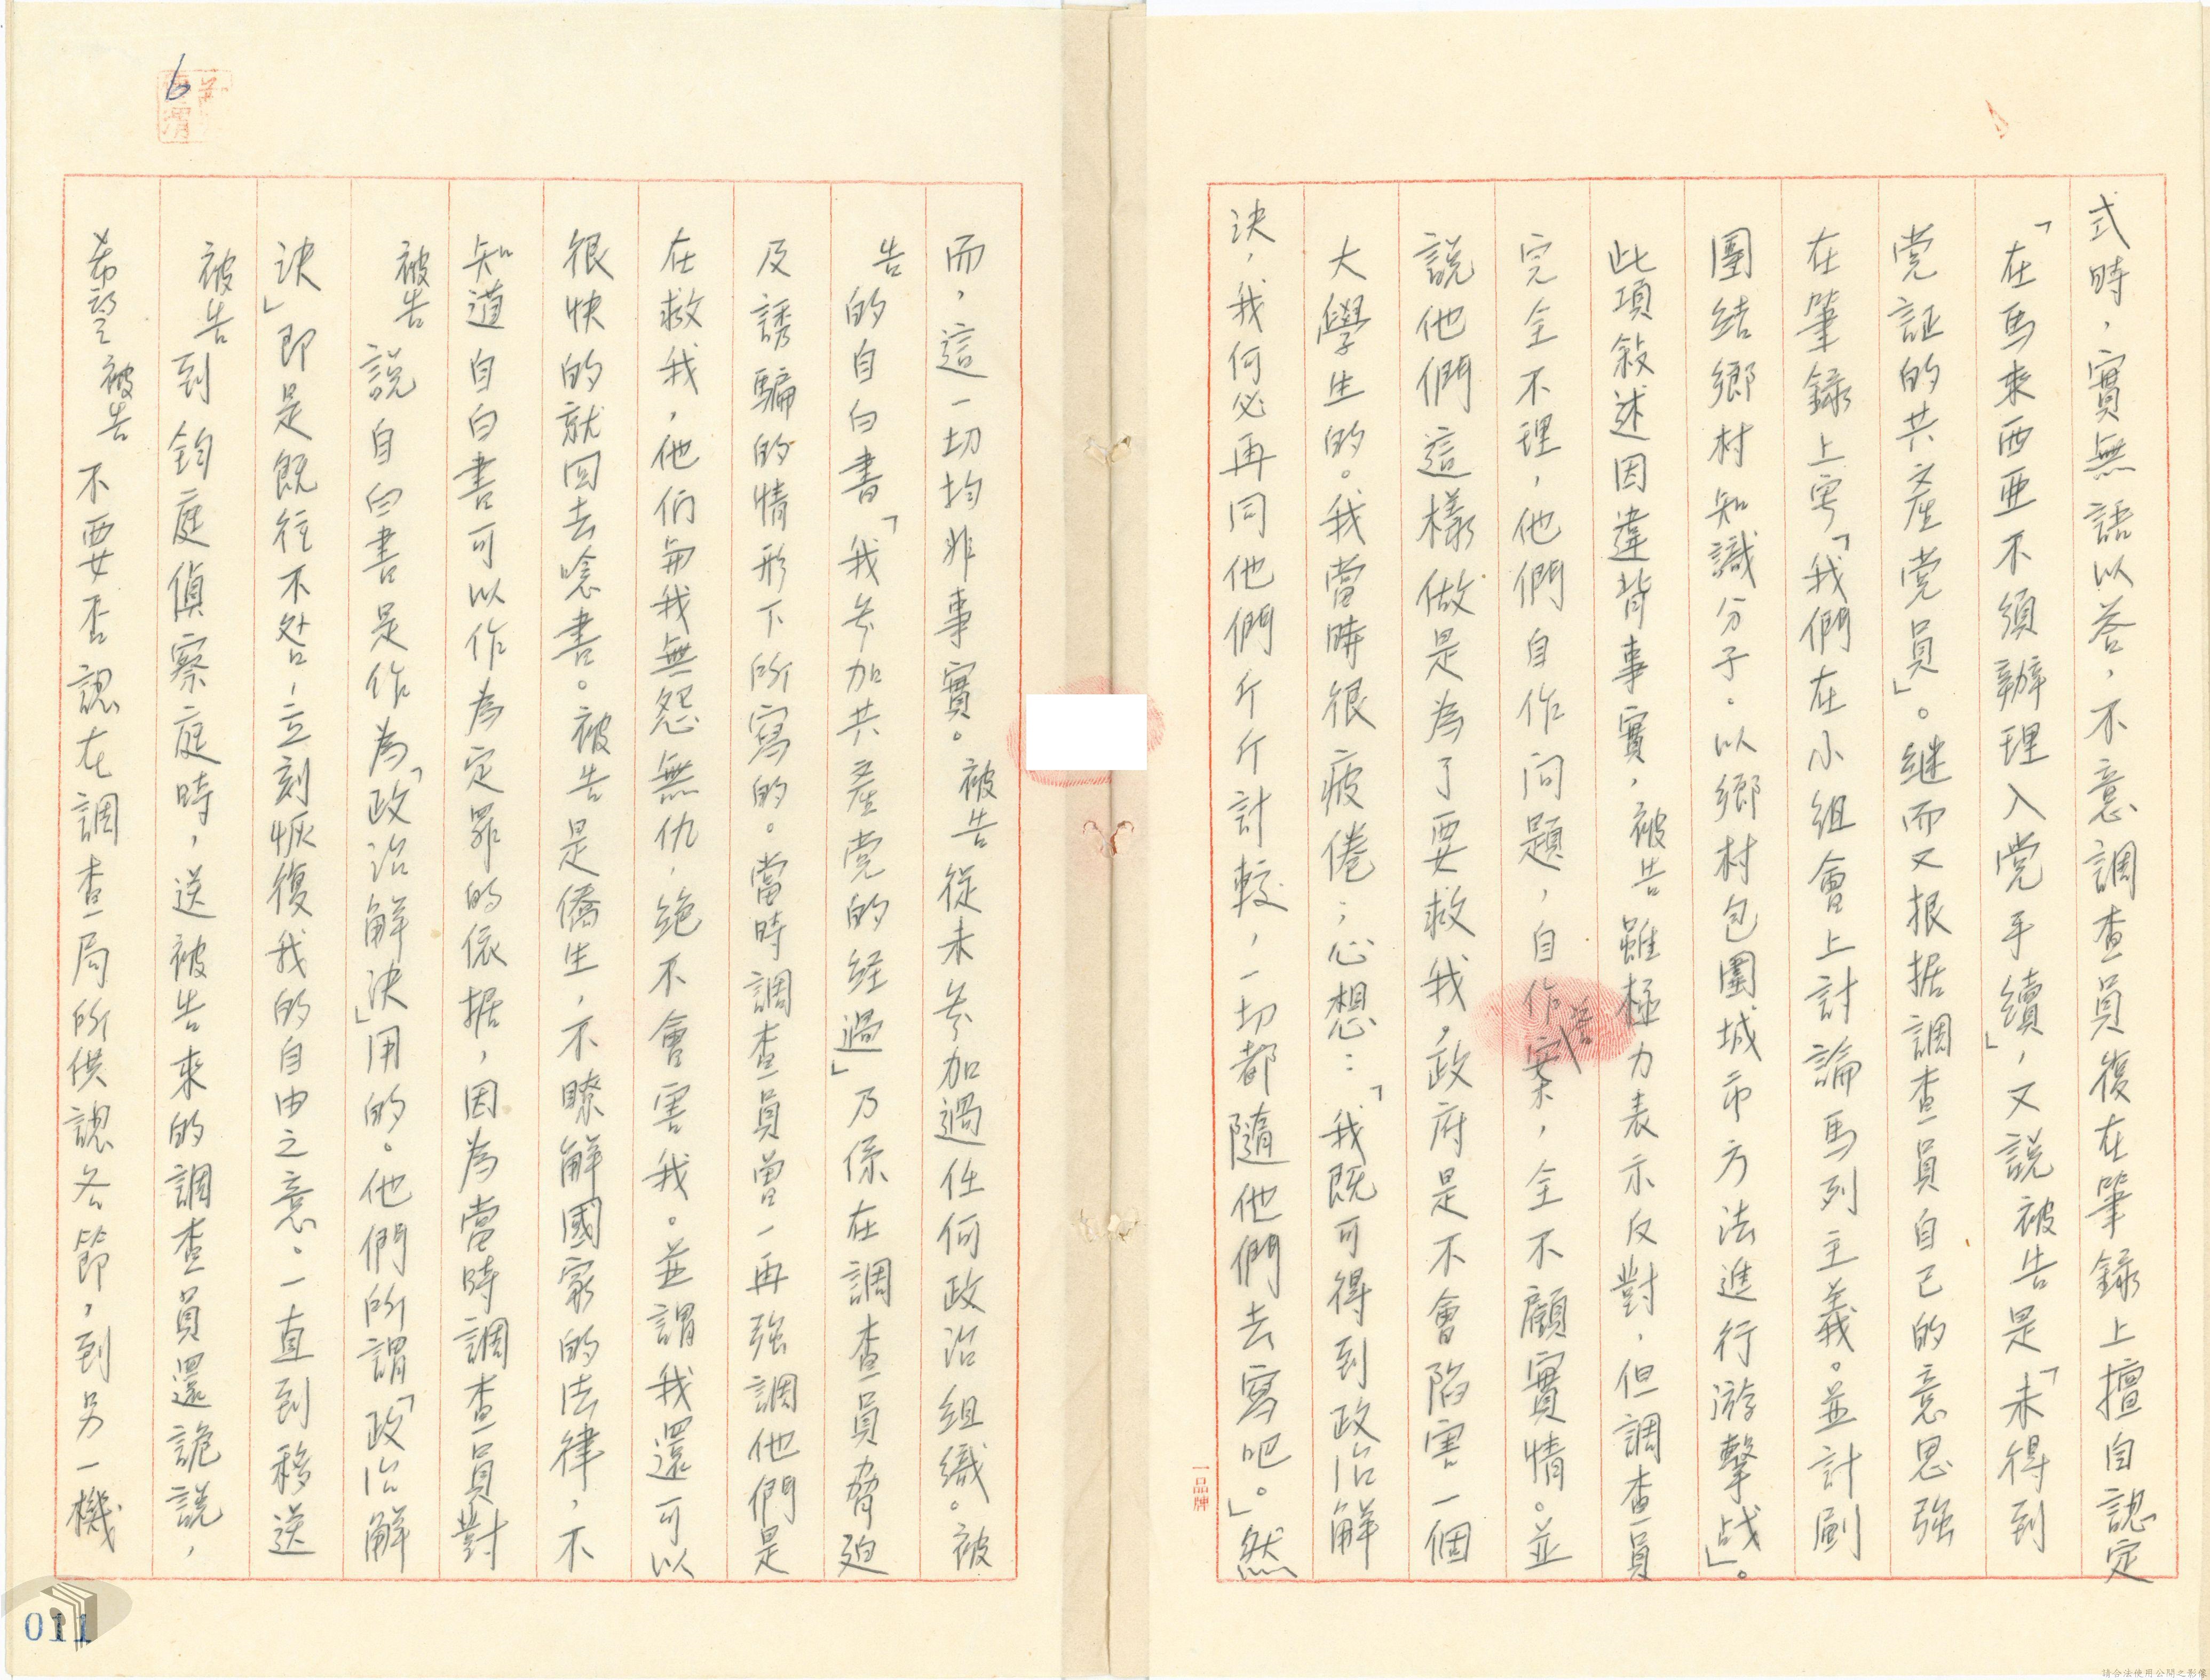 式時，實無語以答，不意調查員復在筆錄上擅自認定
「在馬來西亜不須辦理入党手續」，又說被告是「未得到
党証的共產党員」。継而又根据調查員自己的意思强
在筆錄上寫「我們在小組會上討論馬列主義。並計劃
團結鄉村知識分子。以鄉村包圍城市方法進行游擊战」。
此項敍述因違背事實，被告雖極力表示反對，但調查員
完全不理，他們自作問題，自作答案，全不顧實情。並
說他們這樣做是為了要救我。政府是不會陷害一個
大學生的。我當時很疲倦；心想：「我既可得到政治解
決，我何必再同他們斤斤計較，一切都隨他們去寫吧。」然
一品牌
而，這一切均非事實。被告從未參加過任何政治組織。被
告的自白書「我参加共產党的经過」乃係在調查員脅廹
及誘騙的情形下所寫的。當時調查員曾一再強調他們是
在救我，他们與我無怨無仇，絕不會害我。並謂我還可以
很快的就回去唸書。被告是僑生，不瞭解國家的法律，不
知道自白書可以作為定罪的依据，因為當時調查員對
被告說自白書是作為「政治解決」用的。他們所謂「政治解
決」即是既往不咎，立刻恢復我的自由之意。一直到移送
被告到鈞庭偵察庭時，送被告來的調查員還詭説，
希望被告不要否認在調查局所供認各節，到另一機
6
011
請合法使用公開之影像